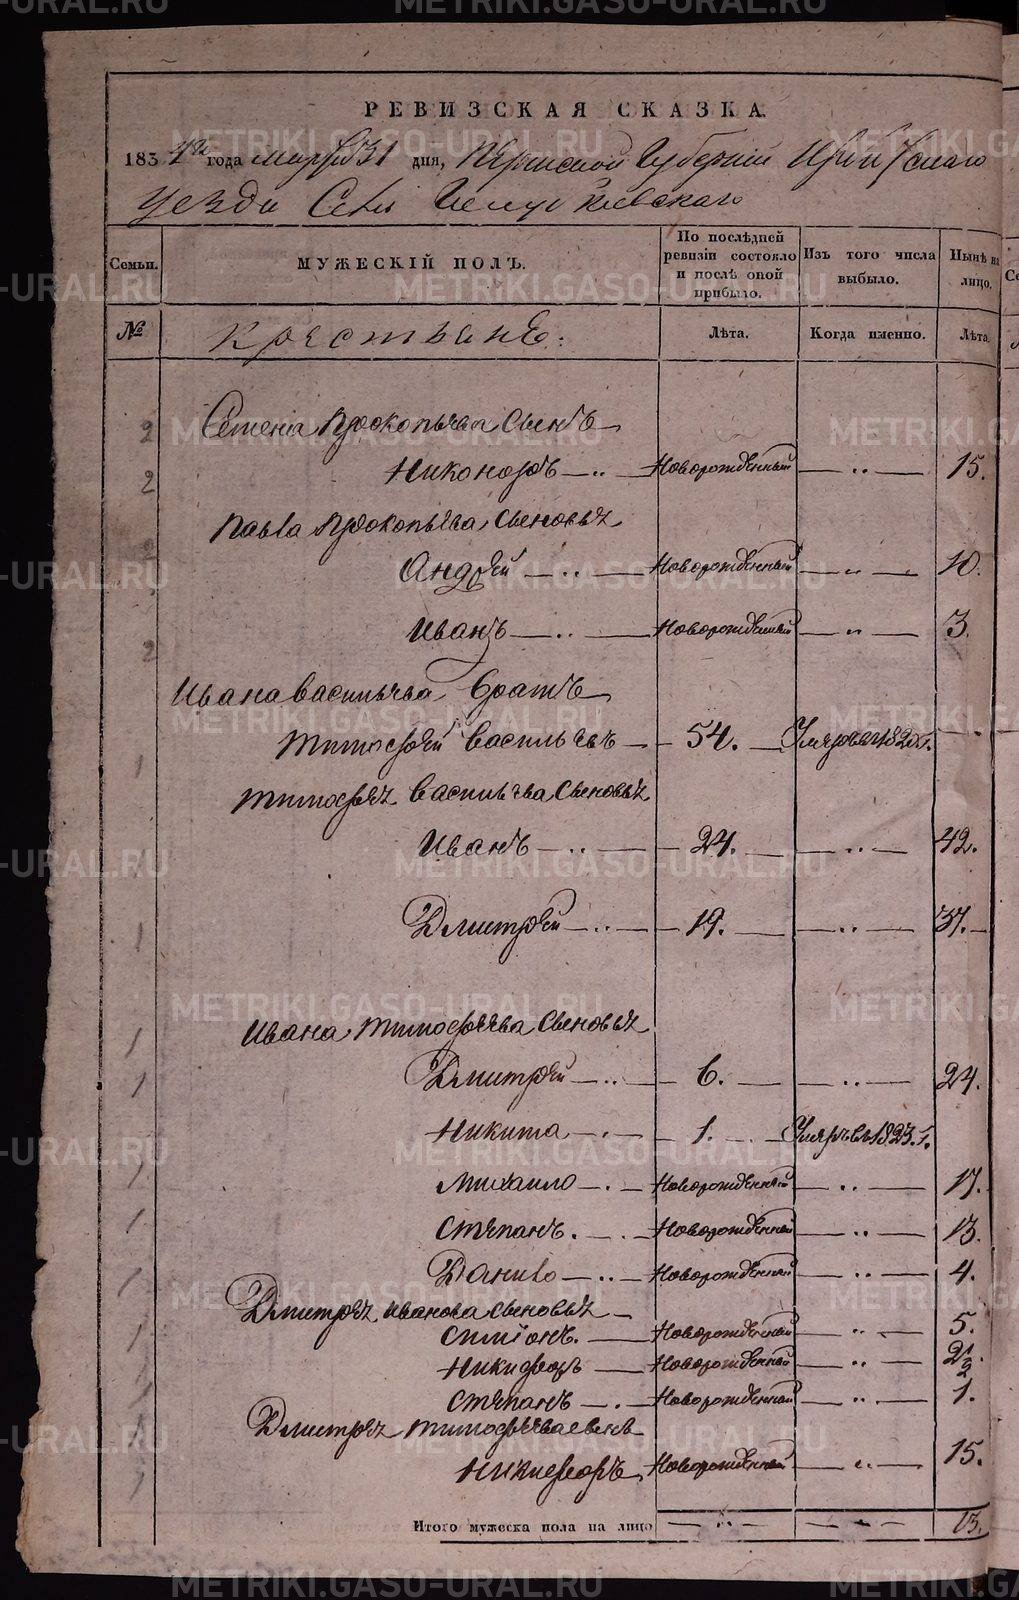 РЕВИЗСКАЯ СКАЗКА.
1834го года марта 31 дня, Пермской Губернии Ирбитскаго
уезда Села
Семьи. МУЖЕСКІЙ ПОЛЪ. По послѣдней ревизіи состояло и послѣ оной прибыло. Изъ того числа выбыло. Нынѣ на лицо.
№ Крестьянѣ: Лѣта. Когда именно. Лѣта.
2 Семена Прокопьева Сынъ
2 Никоноръ Новорожденный — „ — 15.
Павла Прокопьева Сыновья
2 Андрей Новорожденный — „ — 10.
2 Иванъ Новорожденный — „ — 3.
Ивана Васильева братъ
1 Тимофей Васильевъ 54. Умеръ въ
Тимофея Васильева Сыновья
Иванъ 24. — „ — 42.
1 Дмитрей 19. — „ — 37.
Ивана Тимофеева Сыновья
1 Дмитрей 6. — „ — 24.
Никита 1. Умеръ въ 1823 г.
1 Михаило Новорожденный — „ — 17.
1 Степанъ Новорожденный — „ — 13.
1 Данило Новорожденный — „ — 4.
Дмитрея Иванова сыновья
1 Симіонъ Новорожденный — „ — 5.
1 Никифоръ Новорожденный — „ — 2½.
1 Степанъ Новорожденный — „ — 1.
Дмитрея Тимофеева сынъ
1 Никифоръ Новорожденный — „ — 15.
Итого мужеска пола на лицо — „ — — „ — 13.
METRIKI.GASO-URAL.RU